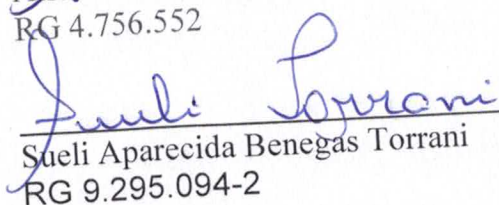 RG 4.756.552
Sueli Torrani
Sueli Aparecida Benegas Torrani
RG 9.295.094-2